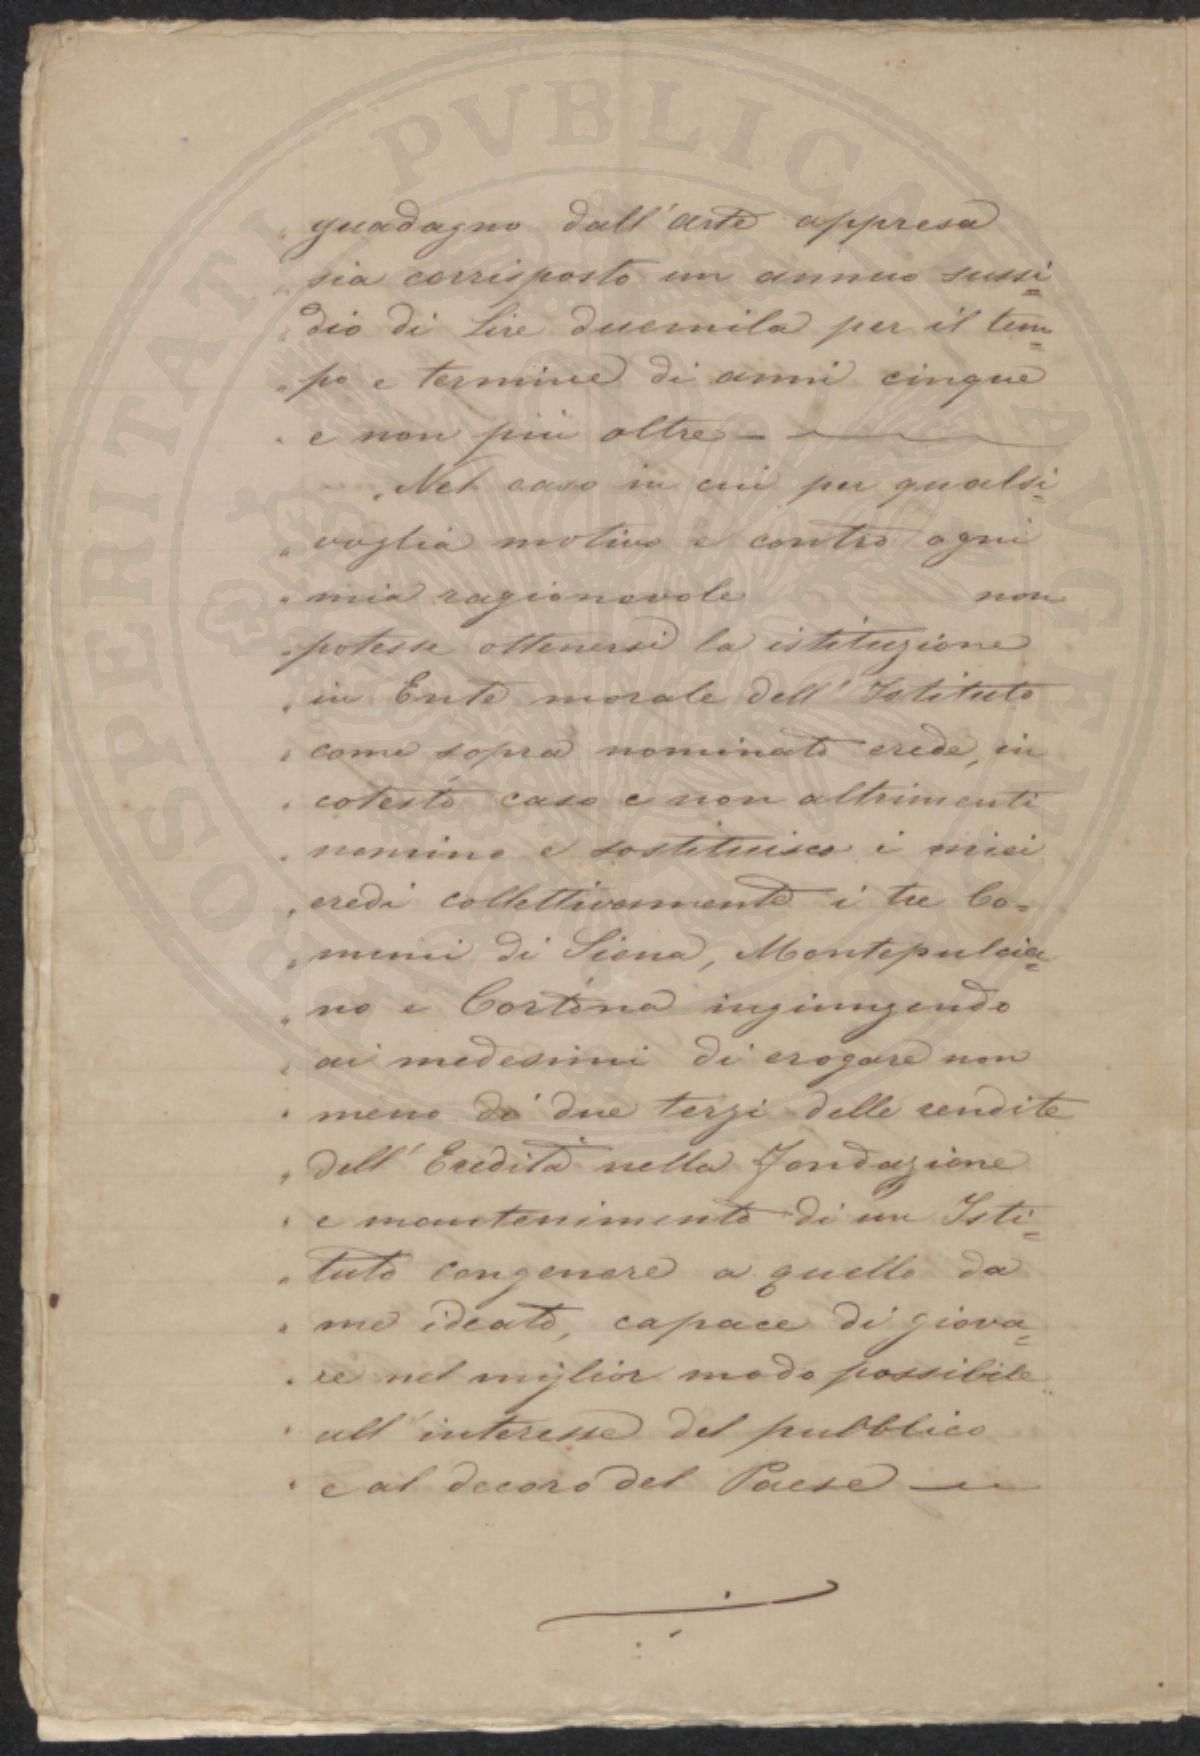 guadagno dall'arte appresa
sia corrisposto un annuo sussi=
dio di Lire duemila per il tem=
po e termine di anni cinque
e non più oltre —
Nel caso in cui per qualsi=
voglia motivo e contro ogni
mia ragionevole non
potesse ottenersi la istituzione
in Ente morale dell'Istituto
come sopra nominato erede, in
cotesto caso e non altrimenti
nomino e sostituisco i miei
eredi collettivamente i tre Co=
muni di Siena, Montepulcia=
no e Cortona ingiungendo
ai medesimi di erogare non
meno di due terzi delle rendite
dell'Eredità nella fondazione
e mantenimento di un Isti=
tuto congenere a quello da
me ideato, capace di giova=
re nel miglior modo possibile
all'interesse del pubblico
e al decoro del Paese —
PROSPERITATI PVBLICAE AVGENDAE